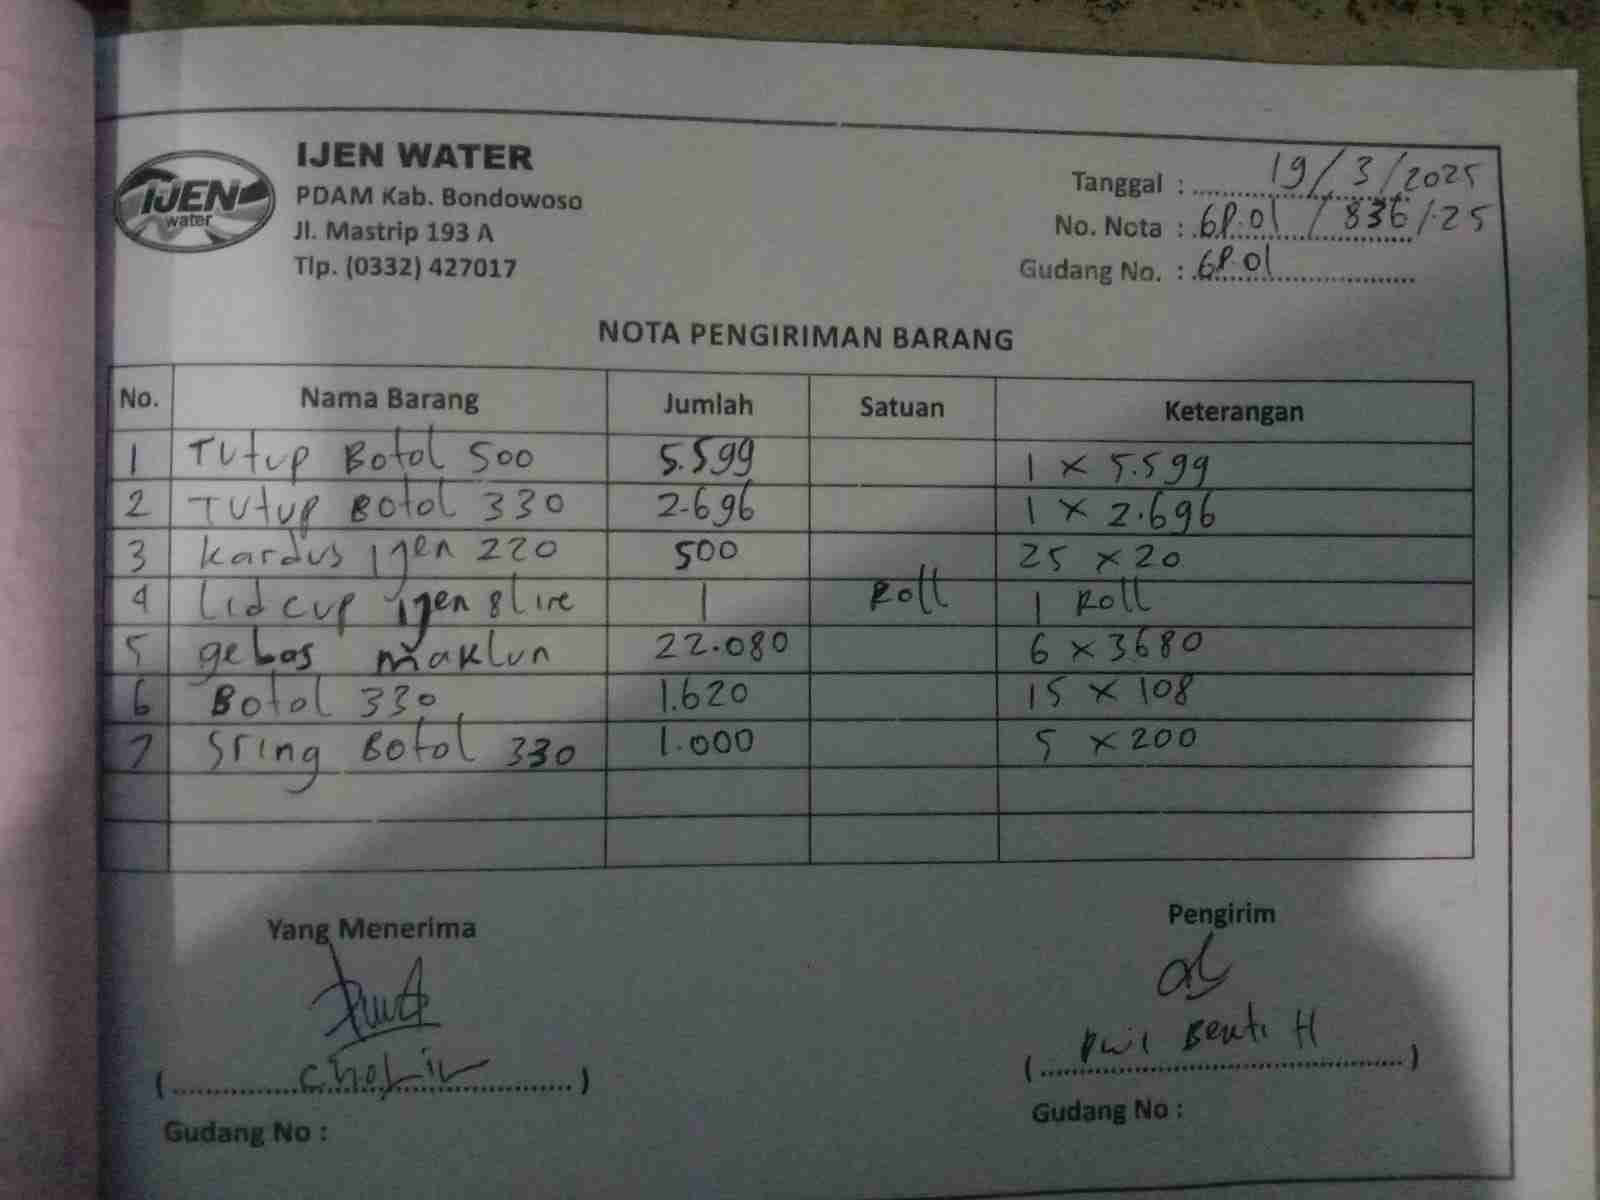 IJEN WATER
PDAM Kab. Bondowoso
Jl. Mastrip 193 A
Tlp. (0332) 427017
IJEN
water
Tanggal : 19/3/2025
No. Nota : 6P.01 / 836/.25
Gudang No. : 6P.01
NOTA PENGIRIMAN BARANG
No. Nama Barang Jumlah Satuan Keterangan
1 Tutup Botol 500 5.599 1 x 5.599
2 Tutup Botol 330 2.696 1 x 2.696
3 Kardus Ijen 220 500 25 x 20
4 Lid cup Ijen 1 Roll 1 Roll
5 gelas maklun 22.080 6 x 3680
6 Botol 330 1.620 15 x 108
7 Sring Botol 330 1.000 5 x 200
Yang Menerima Pengirim
(Cholin) ( H)
Gudang No : Gudang No :